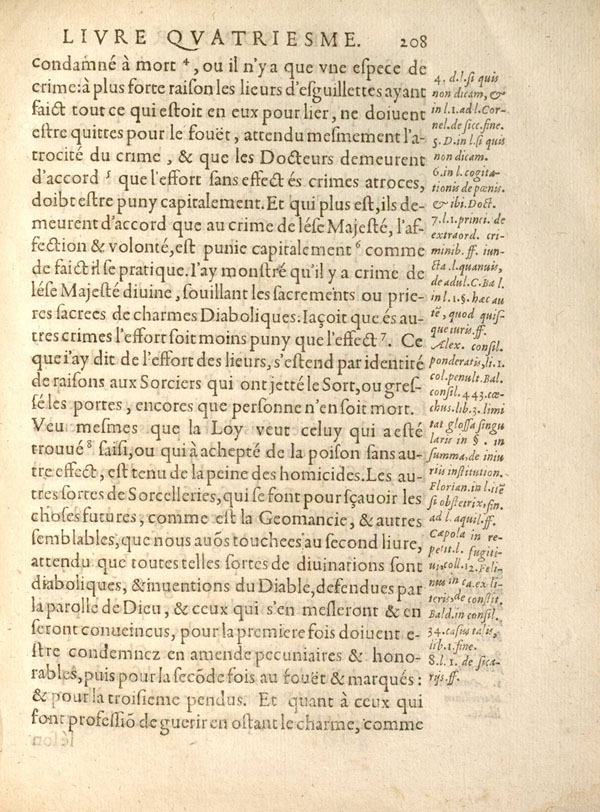 LIVRE QVATRIESME. 208
condamné à mort ⁴, ou il n'y a que vne espece de
crime: à plus forte raison les lieurs d'esguillettes ayant
faict tout ce qui estoit en eux pour lier, ne doiuent
estre quittes pour le fouët, attendu mesmement l'a-
trocité du crime, & que les Docteurs demeurent
d'accord ⁵ que l'effort sans effect és crimes atroces,
doibt estre puny capitalement. Et qui plus est, ils de-
meurent d'accord que au crime de lése Majesté, l'af-
fection & volonté, est punie capitalement ⁶ comme
de faict il se pratique. I'ay monstré qu'il y a crime de
lése Majesté diuine, souillant les sacrements ou prie-
res sacrees de charmes Diaboliques: Iaçoit que és au-
tres crimes l'effort soit moins puny que l'effect ⁷. Ce
que i'ay dit de l'effort des lieurs, s'estend par identité
de raisons aux Sorciers qui ont jetté le Sort, ou gres-
sé les portes, encores que personne n'en soit mort.
Veu mesmes que la Loy veut celuy qui a esté
trouué ⁸ saisi, ou qui à achepté de la poison sans au-
tre effect, est tenu de la peine des homicides. Les au-
tres sortes de Sorcelleries, qui se font pour sçauoir les
choses futures, comme est la Geomancie, & autres
semblables, que nous auõs touchees au second liure,
attendu que toutes telles sortes de diuinations sont
diaboliques, & inuentions du Diable, defendues par
la parolle de Dieu, & ceux qui s'en mesleront & en
seront conueincus, pour la premiere fois doiuent e-
stre condemnez en amende pecuniaires & hono-
rables, puis pour la secõde fois au fouët & marqués:
& pour la troisieme pendus. Et quant à ceux qui
font professiõ de guerir en ostant le charme, comme
4. d.l. si quis
non dicam, &
in l.1. ad l. Cor-
nel. de sicc. fine.
5. D. in l. si quis
non dicam.
6. in l. cogita-
tionis de pœnis.
& ibi Doct.
7. l.1. princi. de
extraord. cri-
minib. ff. iun-
cta l. quanuis,
de adul. C. Bal.
in l.1. §. hæc au
tē, quod quis-
que iuris. ff.
Alex. consil.
ponderatis, li.1.
col. penult. Bal.
consil. 443. cœ-
chus. lib.3. limi
tat glossa singu
laris in §. in
summa, de iniu
riis institution.
Florian. in l. itē
si obstetrix, fin.
ad l. aquil. ff.
Capola in re-
petit. l. fugiti-
ui, coll. 12. Feli-
nus in ca. ex li-
teris, de constit.
Bald. in consil.
34. casus talis,
lib.1. fine.
8. l. 1. de sica-
rijs. ff.